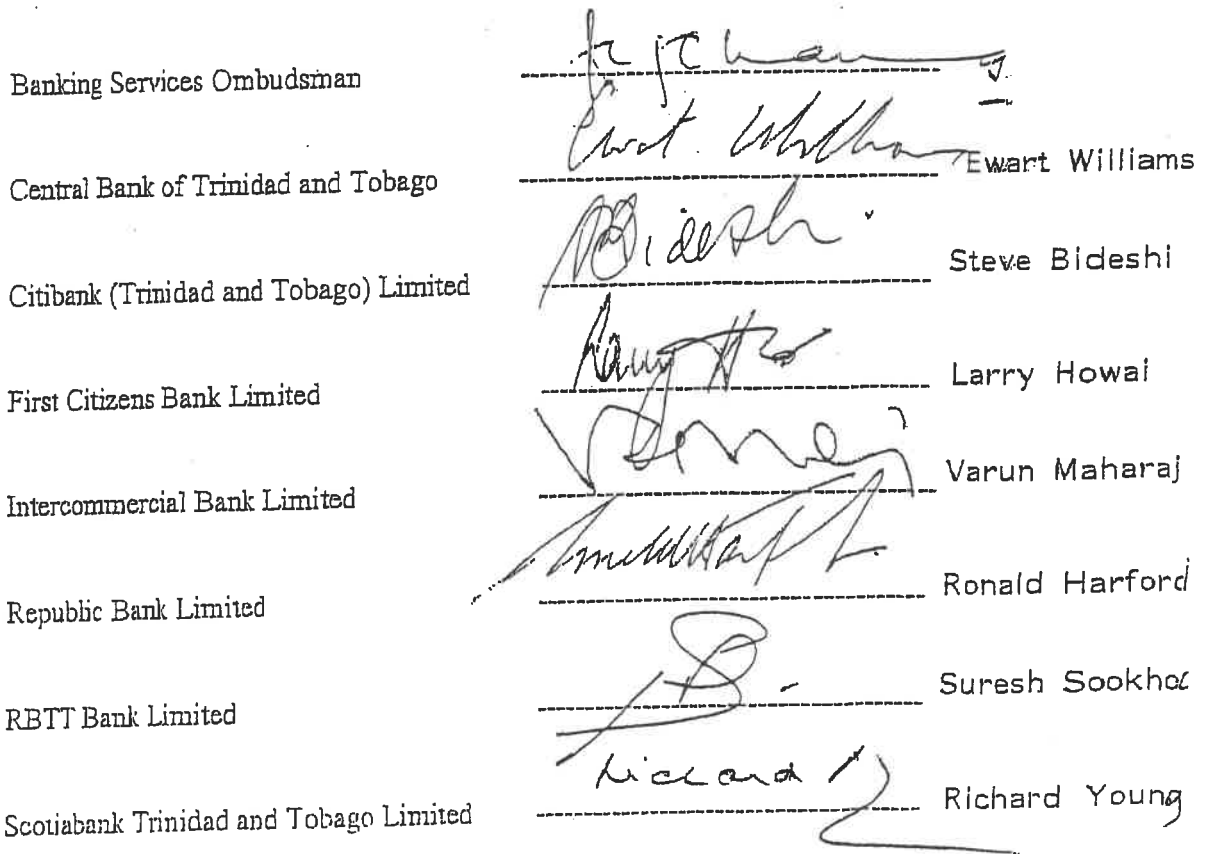 Banking Services Ombudsman
Central Bank of Trinidad and Tobago Ewart Williams
Citibank (Trinidad and Tobago) Limited Bideshi Steve Bideshi
First Citizens Bank Limited Larry Howai
Intercommercial Bank Limited Varun Maharaj
Republic Bank Limited Ronald Harford
RBTT Bank Limited Suresh
Scotiabank Trinidad and Tobago Limited Richard Richard Young